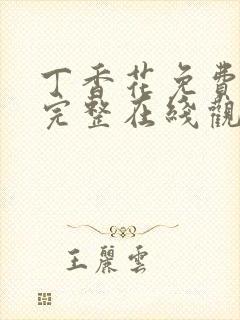 丁香花免費
完整在綫觀
王麗雲